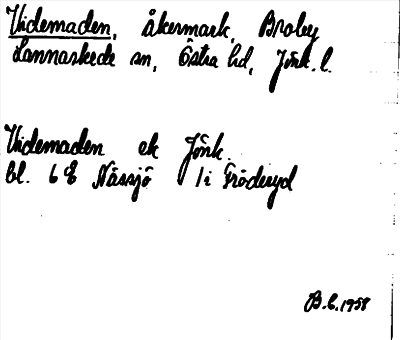 Videmaden, åkermark, Broby
Lannaskede sn, Östra hd, Jönk. l.
Videmaden ek Jönk.
bl. 6 E Nässjö 1 i Fröderyd
B.E. 1958